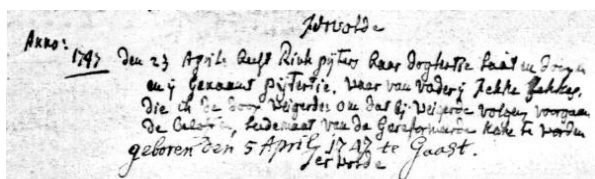 Ferwolde
Anno:
1747 den 23 April heeft Rink pijters haar doghertie laat en
en ij Genaamt pijtertie, waar van vader ij Fekke Fekkes,
die ik de doop weigerde om dat hij weigerde volgens
de ledemaat van de Gereformeerde kerke te worden
geboren den 5 April 1747 te Gaast.
Ferwolde